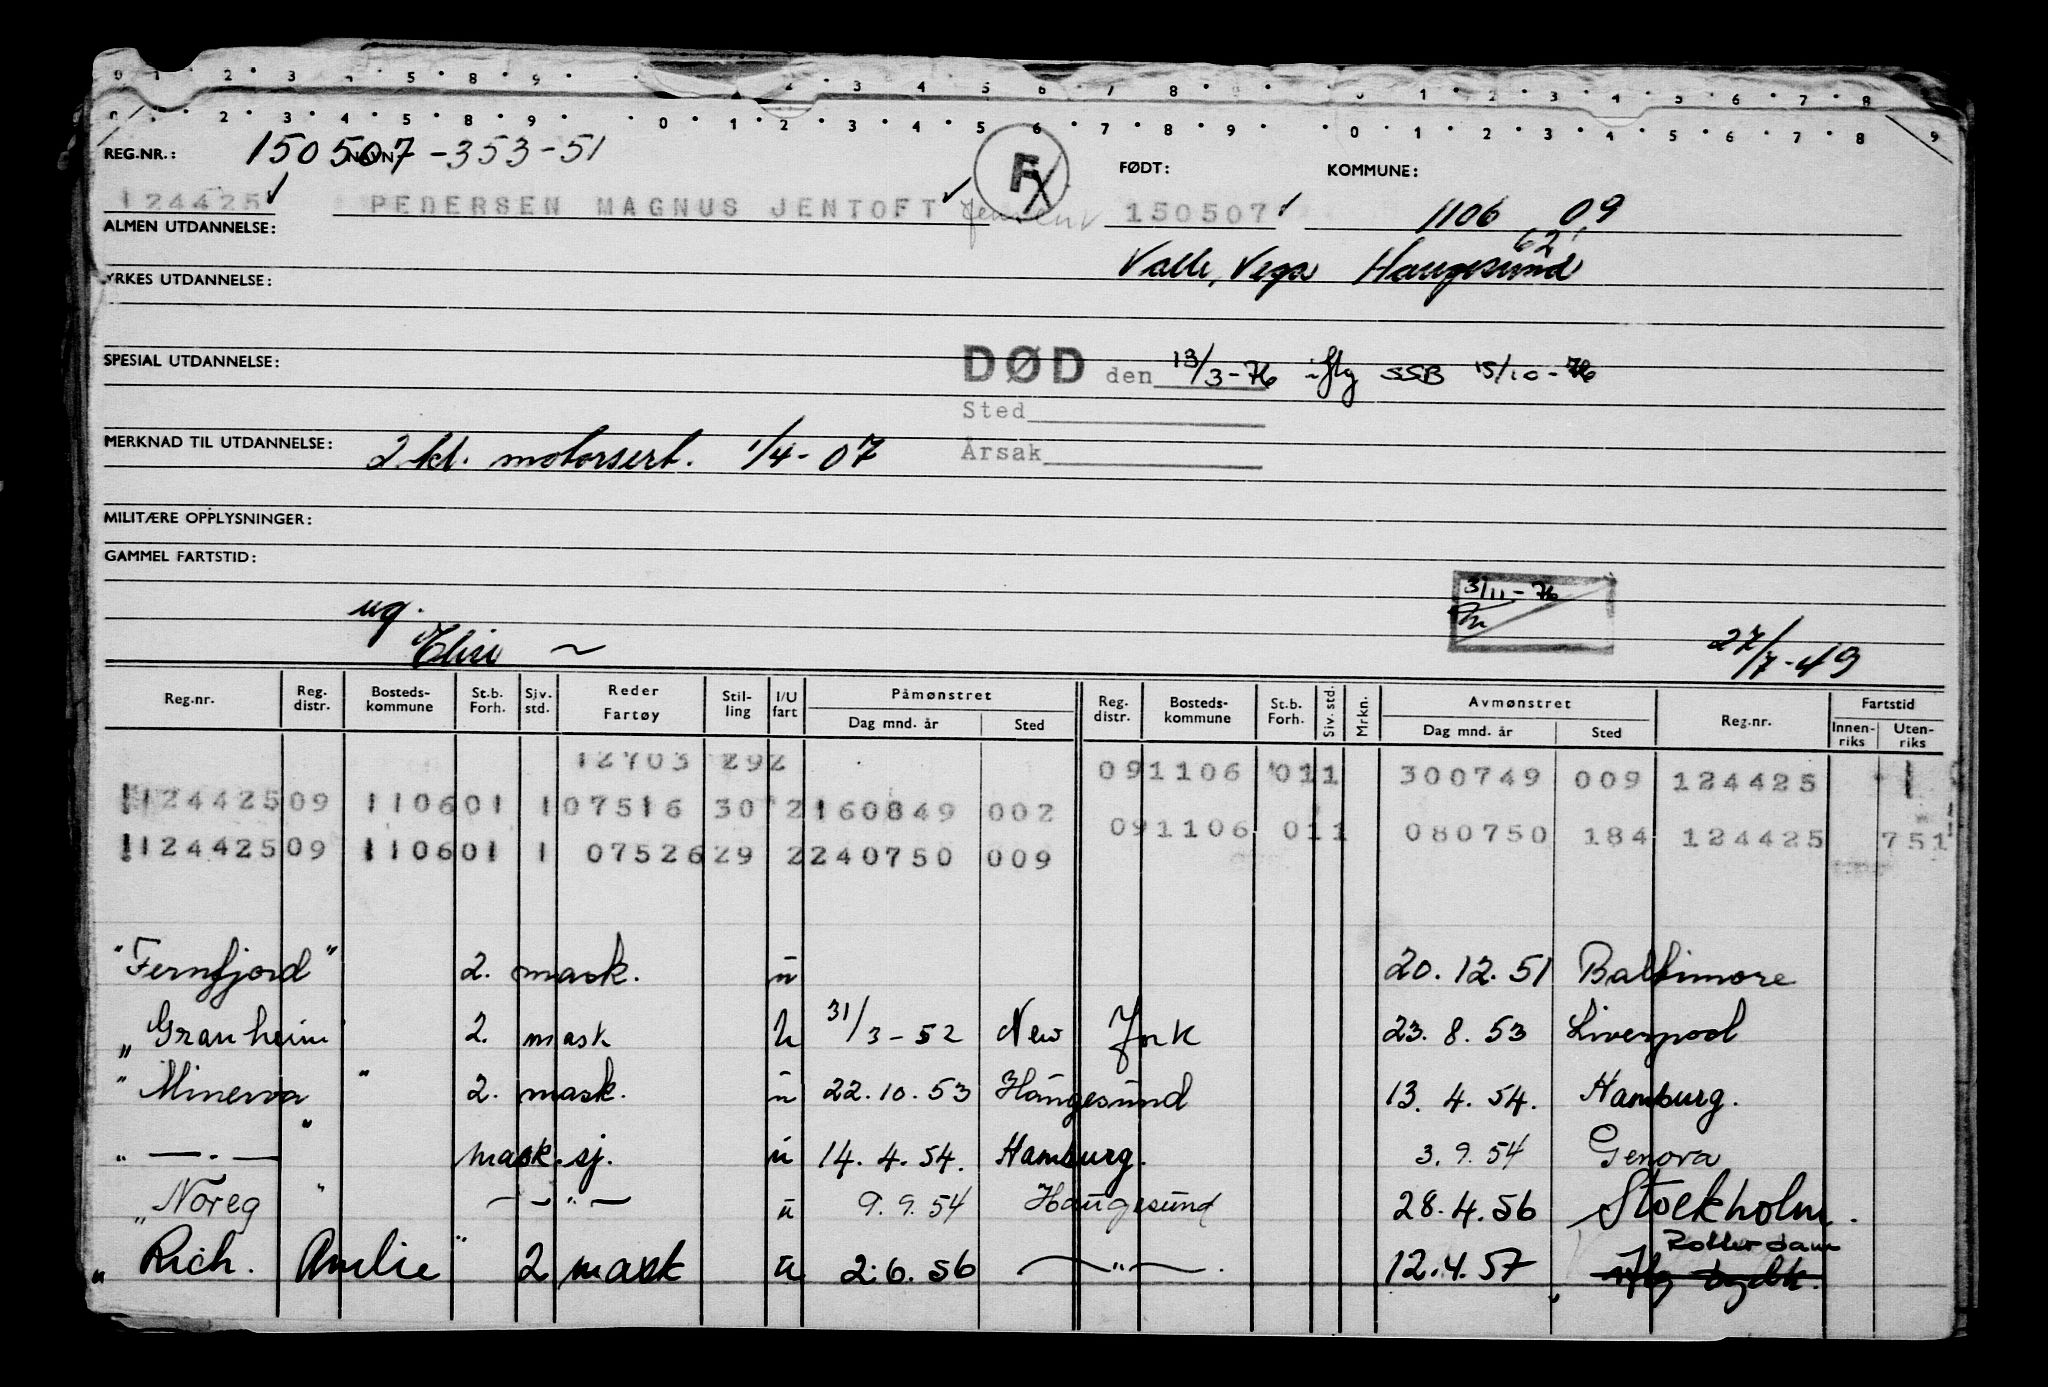 0 1 2 3 4 5 6 8 9 0 1 2 3 4 5 6 7 8 9 0 1 2 3 4 5 6 7 8 9
REG.NR.: 150507-353-51 NAVN FX FØDT: KOMMUNE:
124425 PEDERSEN MAGNUS JENTOFT 150507 1106 09
ALMEN UTDANNELSE: 62
Valle, Vega Haugesund
YRKES UTDANNELSE:
SPESIAL UTDANNELSE: DØD den 13/3-76 iflg SSB 15/10-76
Sted
MERKNAD TIL UTDANNELSE: 2 kl. motorsert. 1/4-07 Årsak
MILITÆRE OPPLYSNINGER:
GAMMEL FARTSTID:
3/11-76
ug.
Elisi ~ 27/7-49
Reg.nr. Reg. distr. Bosteds-kommune St.b. Forh. Siv. std. Reder Fartøy Stil-ling I/U fart Påmønstret Dag mnd. år Sted Reg. distr. Bosteds-kommune St.b. Forh. Siv. std. Mrkn. Avmønstret Dag mnd. år Sted Reg.nr. Fartstid Innen-riks Uten-riks
12703 292 091106 011 300749 009 124425 1
112442509 110601 107516 30 2160849 002 091106 011 080750 184 124425 751
112442509 110601 1 0752629 2240750 009
"Fernfjord" 2. mask. u 20.12.51 Baltimore
"Granheim 2. mask u 31/3-52 New York 23.8.53 Liverpool
"Minerva" 2. mask. u 22.10.53 Haugesund 13.4.54. Hamburg.
" —.— " mask.sj. u 14.4.54. Hamburg. 3.9.54 Genova
"Noreg" — - " — u 9.9.54 Haugesund 28.4.56 Stockholm.
"Rich. Amlie" 2 mask u 2.6.56 — " — . 12.4.57 Rotterdam